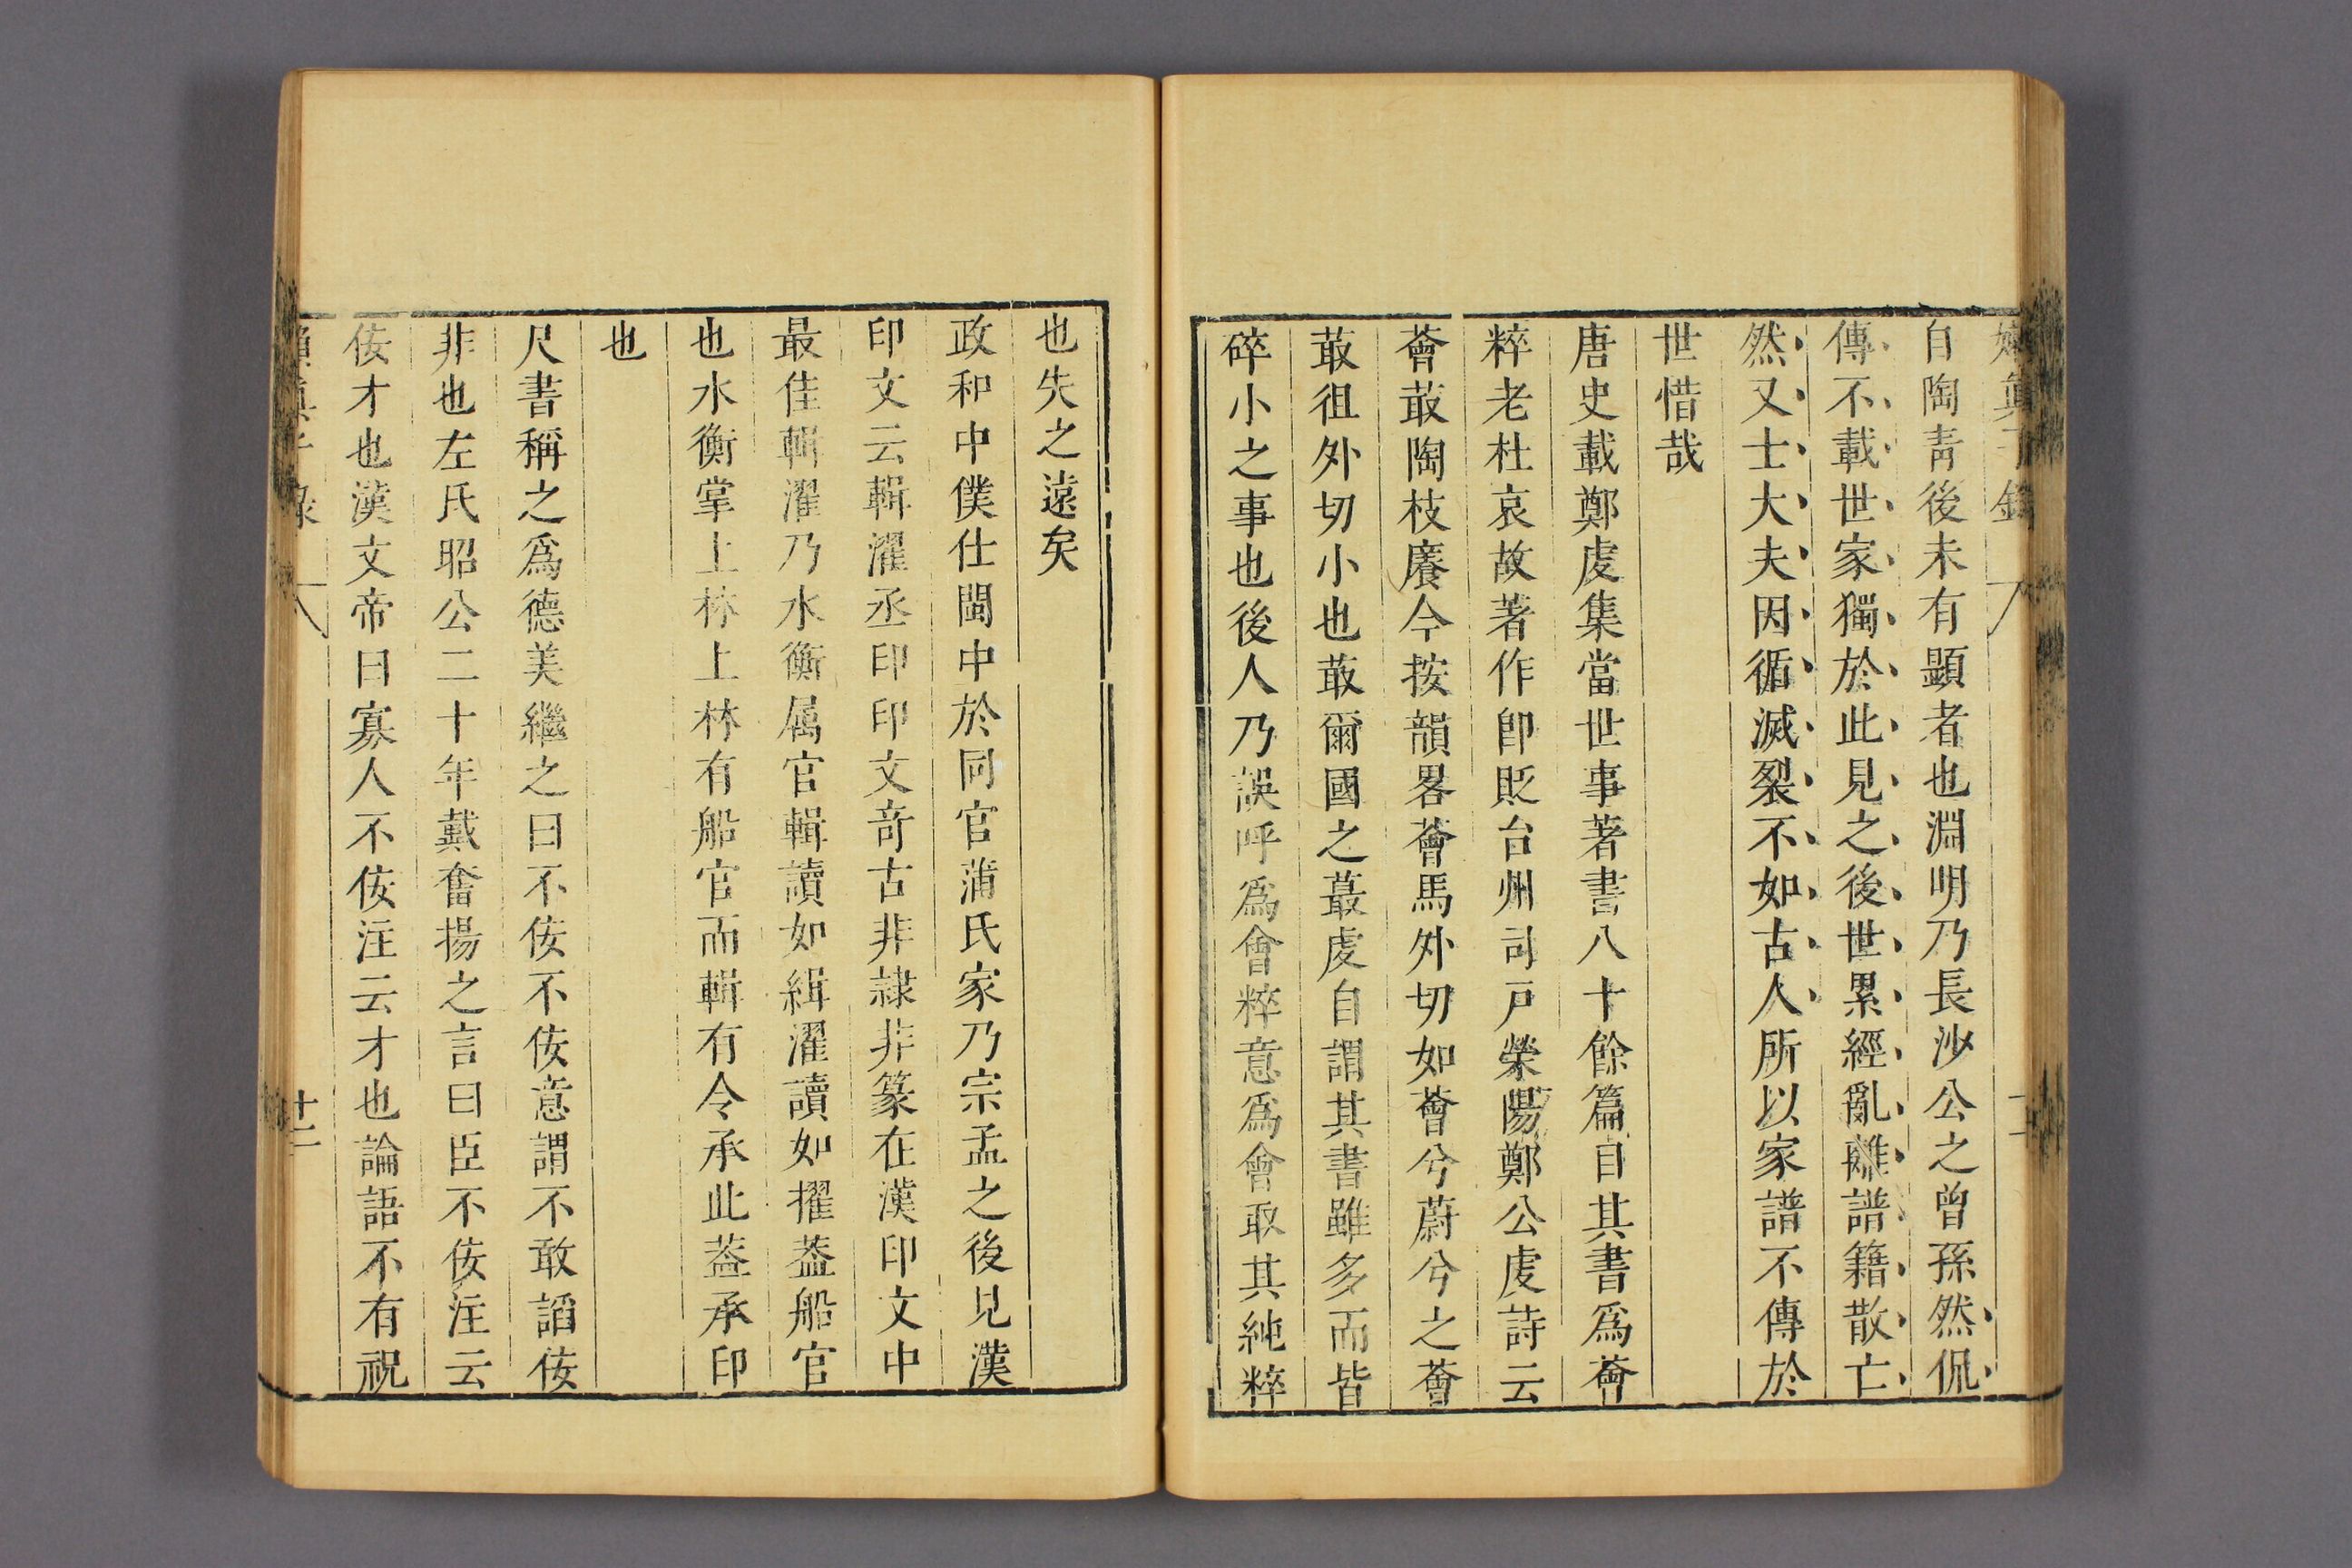 自陶靑後未有顯者也淵明乃長沙公之曾孫然侃
傳不載世家獨於此見之後世累經亂離譜籍散亡
然又士大夫因循滅裂不如古人所以家譜不傳於
世惜哉
唐史載鄭虔集當世事著書八十餘篇目其書爲薈
粹老杜哀故著作卽貶台州司戸滎陽鄭公虔詩云
薈蕞陶枝廕今按韻畧薈馬外切如薈兮蔚兮之薈
蕞徂外切小也蕞爾國之蕞虔自謂其書雖多而皆
碎小之事也後人乃誤呼爲會粹意爲會取其純粹
也失之遠矣
政和中僕仕閩中於同官蒲氏家乃宗孟之後見漢
印文云輯濯丞印印文竒古非隷非篆在漢印文中
最佳輯濯乃水衡属官輯讀如緝濯讀如擢葢船官
也水衡掌上林上林有船官而輯有令承此葢承印
也
尺書稱之爲德美繼之曰不佞不佞意謂不敢謟佞
非也左氏昭公二十年戴奮揚之言曰臣不佞注云
佞才也漢文帝曰寡人不佞注云才也論語不有祝
十二